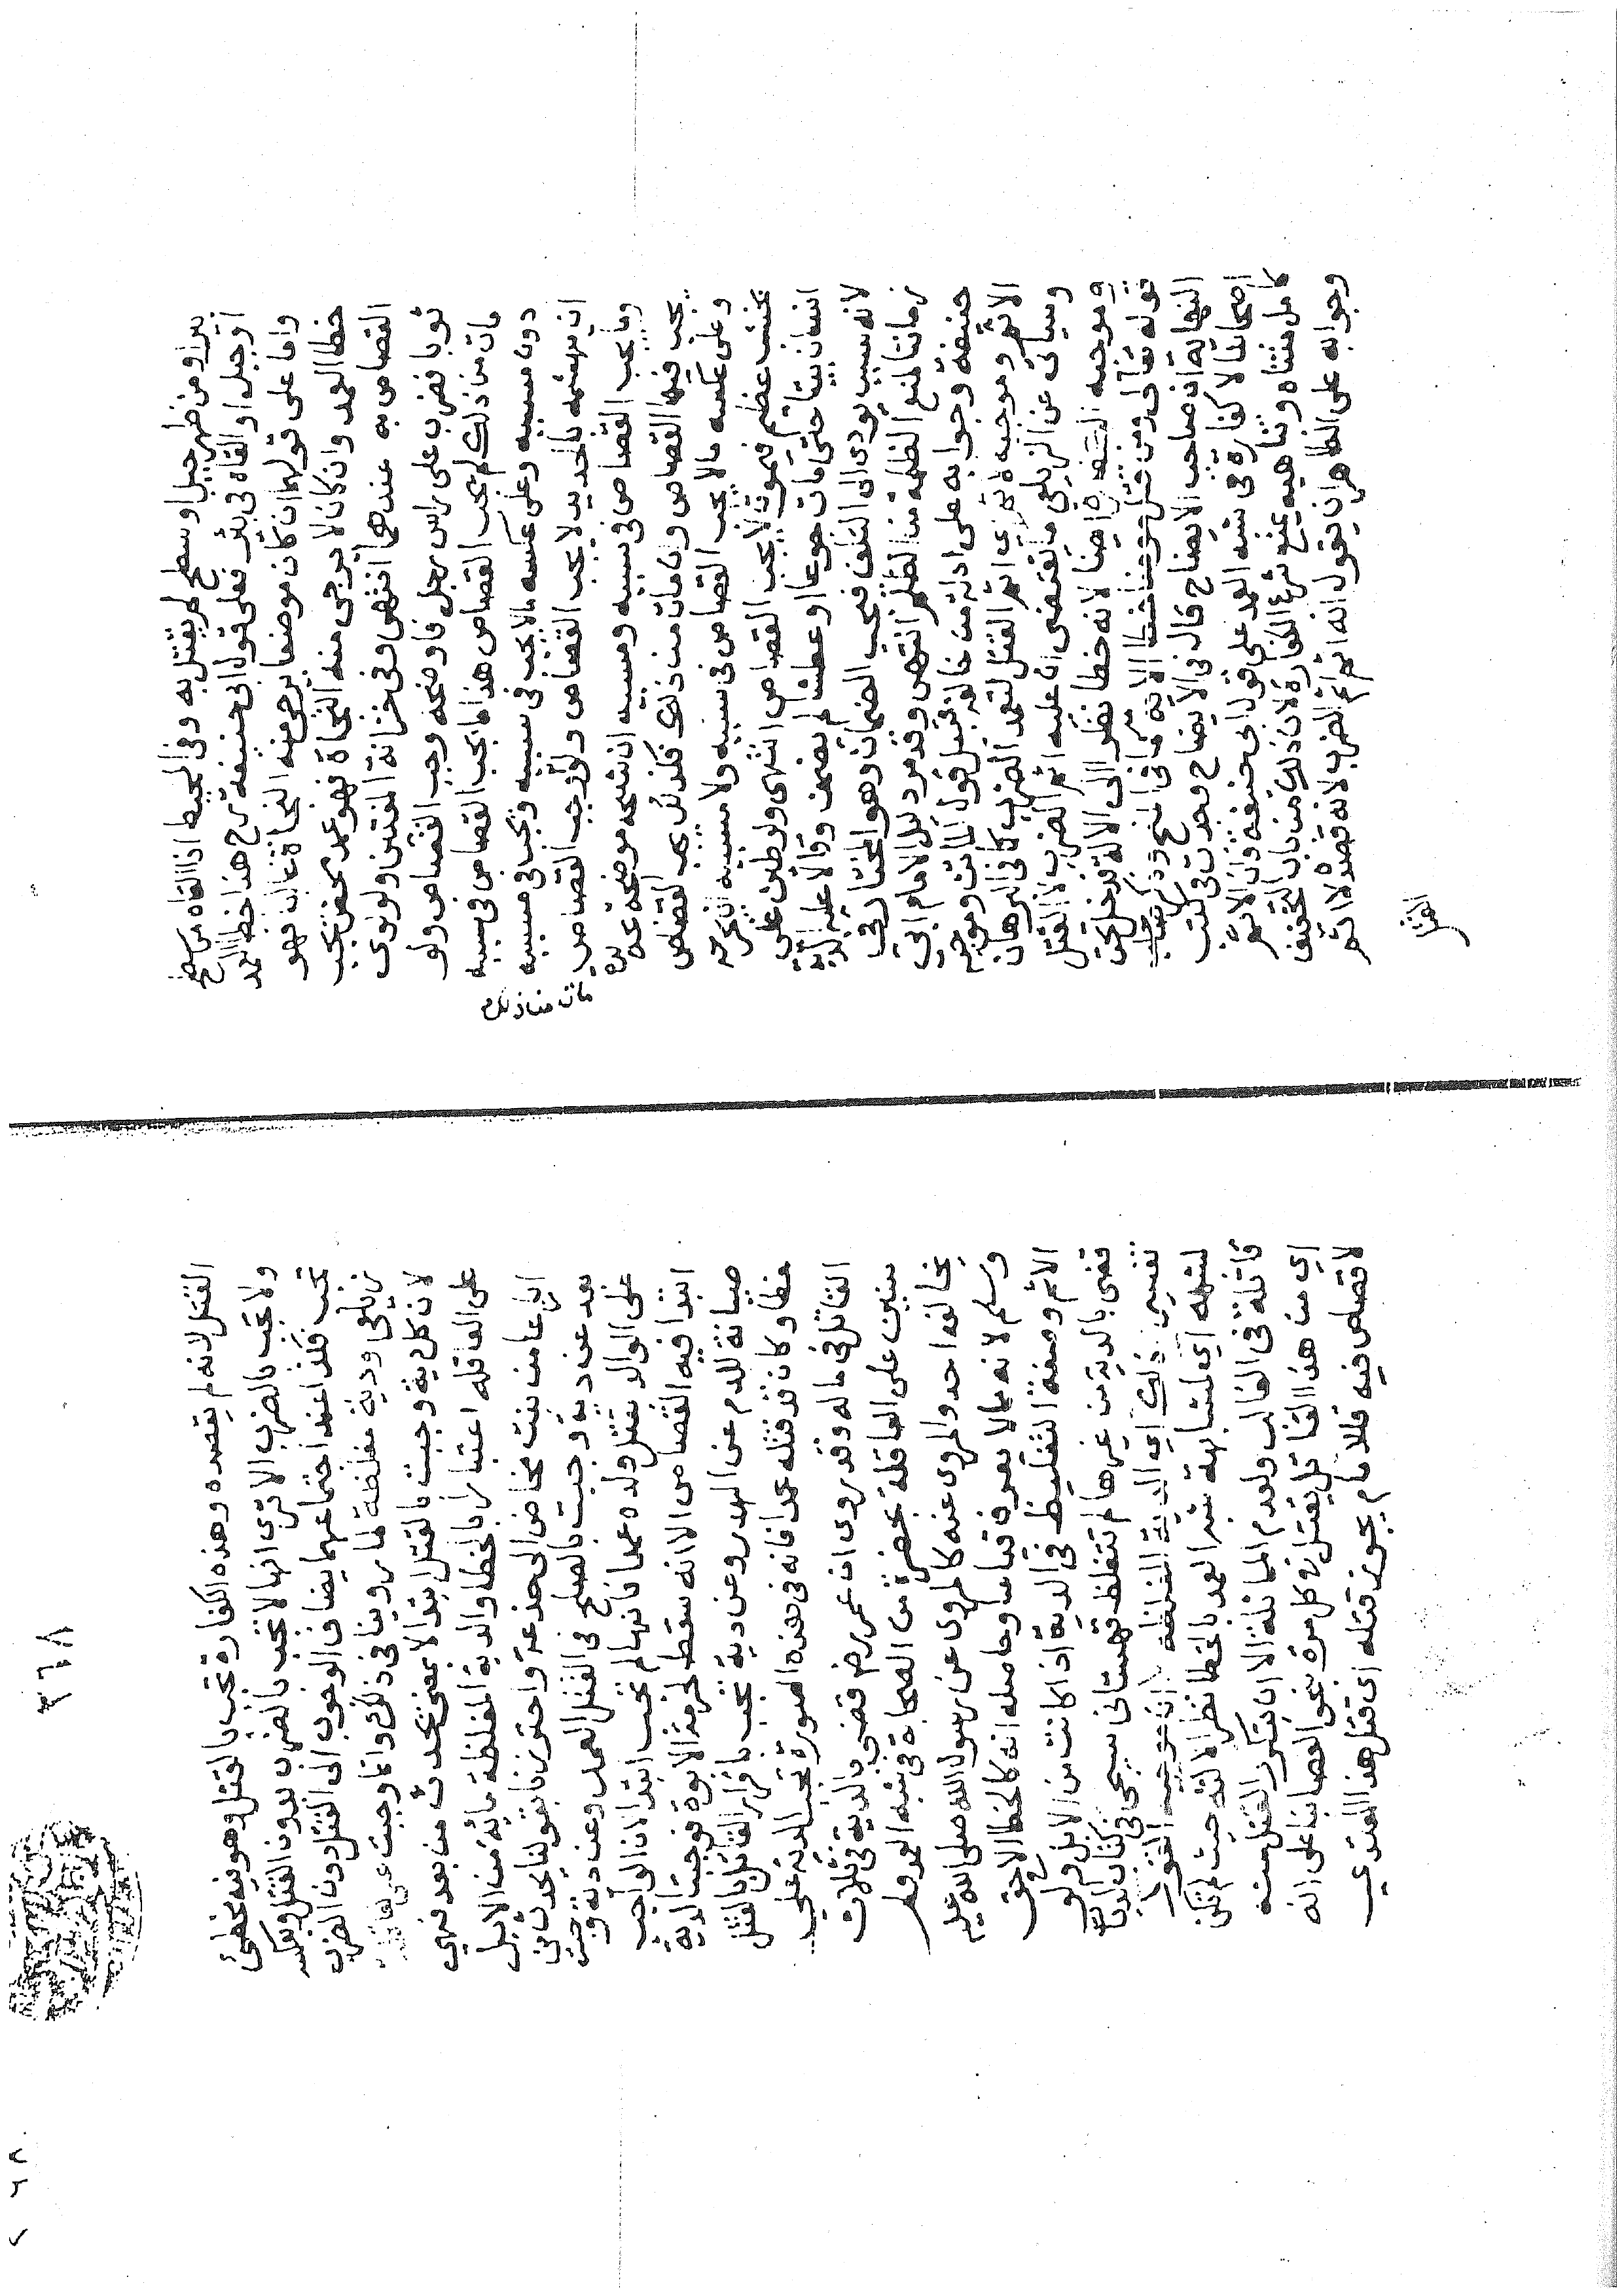 بيرا ومن ظهر جبل او سطح لم يقتل به وفي المحيط اذا القاه من سطح
او جبل او القاه في بئر فعلى قول ابي حنيفة رح هذا خطا العمد
واما على قولهما ان كان موضعا يرجى منه النجاة غالبا فهو
خطا العمد وان كان لا يرجى منه النجاة فهو عمد محض يجب
القصاص به عندهما انتهى وفي خزانة المفتين ولو لوى
ثوبا فضرب على راس رجل فاوضحه وجب القصاص ولو
مات من ذلك لم يجب القصاص هذا ما يجب القصاص في سببه
دون مسببه وعلى عكسه ما لا يجب في سببه ويجب في مسببه
ان يهشمه بالحديد لا يجب القصاص ولو وجب القصاص
مات من ذلك
وما يجب القصاص في سببه ومسببه ان شجه موضحة عمدا
يجب فيها القصاص وان مات من ذلك فكذلك يجب القصاص
وعلى عكسه ما لا يجب القصاص في سببه ولا مسببه ان يجرحه
بخشب عظيم فيموت لا يجب القصاص انتهى ولو طين على
انسان بيتا حتى مات جوعا او عطشا لم يضمن وقالا عليه الدية
لانه سبب يودى الى التلف فيجب الضمان وهو المختار في
زماننا لمنع الظلمة من الظلم انتهى وقد مر دليل الامام ابي
حنيفة وجوابه على ادلة من خالفه قبيل قول الماتن وموجبه
الاثم وموجبه اي اثم القتل لتعمد الضرب كما في البرهان
وسياتي عن الزيلعي ما يقتضي ان عليه اثم الضرب لا القتل
وموجبه الكفارة ايضا لانه خطا نظرا الى الالة فدخل تحت
قوله تعالى ومن قتل مومنا خطا الاية كما في المنح وذكر
النهاية ان صاحب الايضاح قال في الايضاح وجدت في كتب
اصحابنا لا كفارة في شبه العمد على قول ابي حنيفة فان الاثم
كامل متناه وتناهيه يمنع شرع الكفارة لان ذلك من باب التخفيف
وجوابه على الظاهر ان يقول انه اثم اثم الضرب لانه قصده لا اثم
القتل
٣٦٨
القتل لانه لم يقصده وهذه الكفارة تجب بالقتل وهو فيه مخطئ
ولا تجب بالضرب الا ترى انها لا تجب بالضرب بدون القتل وبعكسه
تجب فكذا عند اجتماعهما يضاف الوجوب الى القتل دون الضرب
زيلعي ودية مغلظة لما روينا في ذلك وانما وجبت على العاقلة
لان كل دية وجبت بالقتل ابتدا لا بمعنى يحدث من بعد فهي
على العاقلة اعتبارا بالخطا والدية المغلظة مائة من الابل
ارباعا من بنت مخاض الى جذعة واحترزنا بقولنا يحدث من
بعد عن دية وجبت بالصلح في القتل العمد وعن دية وجبت
على الوالد بقتل ولده عمدا فانها لم تجب ابتدا لان الواجب
ابتدا فيه القصاص الا انه سقط لحرمة الابوة فوجبت الدية
صيانة للدم عن الهدر وعن دية تجب باقرار القاتل بالقتل
خطا وكان قد قتله عمدا فانه في هذه الصورة تجب الدية على
القاتل في ماله وقد روى ان عمر رض قضى بالدية في ثلاث
سنين على العاقلة بمحضر من الصحابة في شبه العمد ولم
يخالفه احد والمروى عنه كالمروى عن رسول الله صلى الله عليه
وسلم لانه مما لا يعرف قياسا وحاصله انه كالخطا الا في حق
الاثم وصفة التغليظ في الدية اذا كانت من الابل ولو
قضى بالدية من غيرها لم تتغلظ قهستاني سيجى في كتاب الديات
تفسير ذلك اي الدية المغلظة لا ان موجبه القود
لشبهه اي لمشابهة شبه العمد بالخطا نظرا لالته حيث لم تكن
قاتلة في الغالب ولعدم المماثلة الا ان يتكرر القتل منه
اي من هذا القاتل يقتل في كل مرة بنحو العصا بناء على انه
لا قصاص فيه فللامام يجوز قتله اي قتل هذا المعتدي